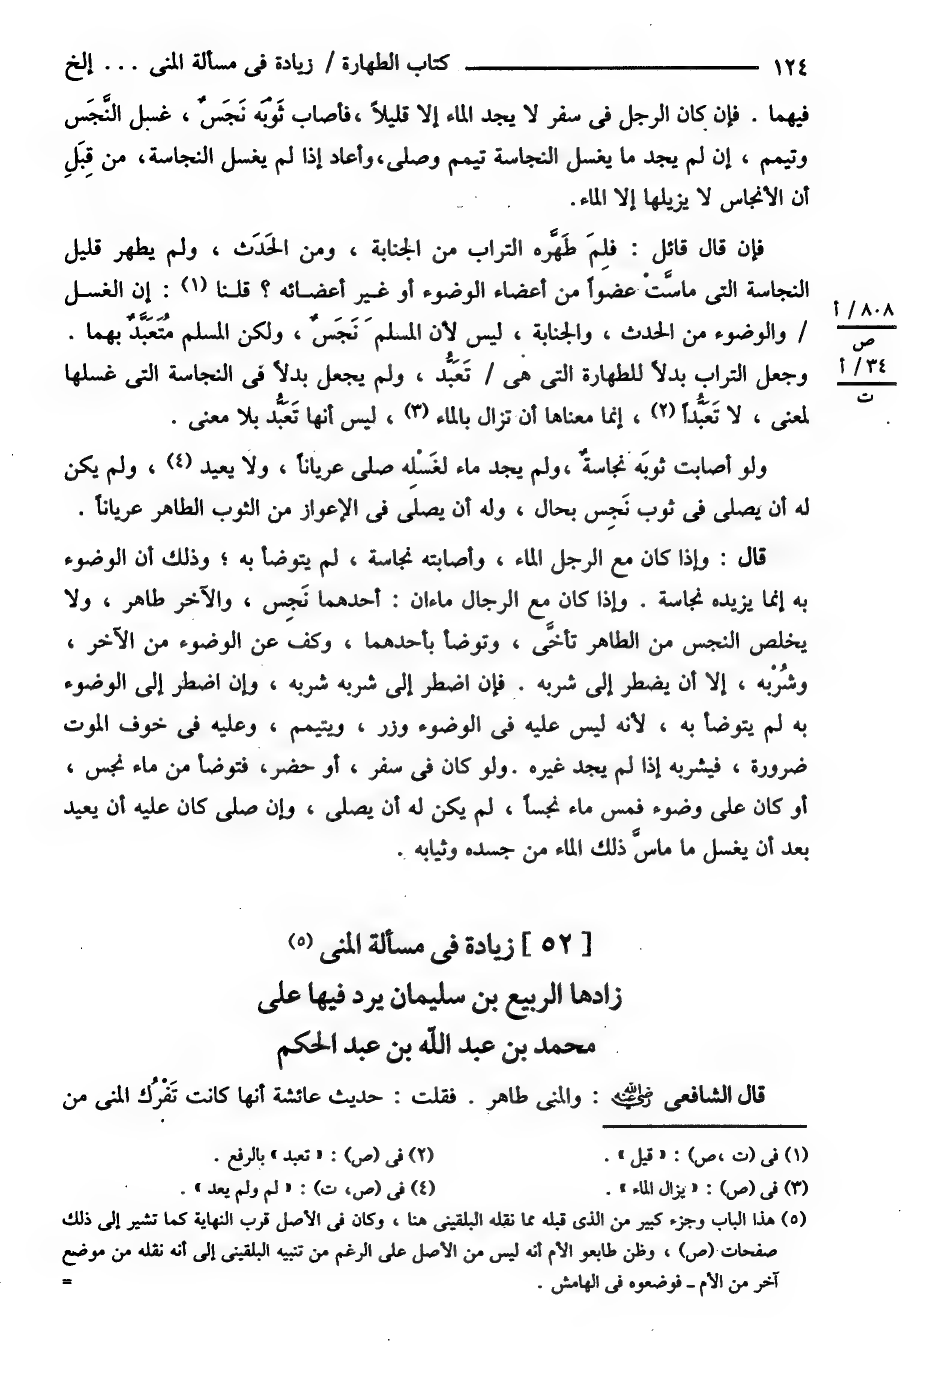 ١٢٤ ــــــــــــــــــــ كتاب الطهارة / زيادة فى مسألة المنى ... إلخ
فيهما . فإن كان الرجل فى سفر لا يجد الماء إلا قليلاً ،فأصاب ثَوْبَه نَجَسٌ ، غسل النَّجَس
وتيمم ، إن لم يجد ما يغسل النجاسة تيمم وصلى،وأعاد إذا لم يغسل النجاسة، من قِبَلِ
أن الأنجاس لا يزيلها إلا الماء.
فإن قال قائل : فلِمَ طَهَّره التراب من الجنابة ، ومن الحَدَث ، ولم يطهر قليل
النجاسة التى ماسَّتْ عضواً من أعضاء الوضوء أو غـير أعضـائه ؟ قلـنا (١) : إن الغسـل
/ والوضوء من الحدث ، والجنابة ، ليس لأن المسلمَ نَجَسٌ ، ولكن المسلم مُتَعَبَّدٌ بهما .
وجعل التراب بدلاً للطهارة التى هى / تَعَبُّد ، ولم يجعل بدلاً فى النجاسة التى غسلها
لمعنى ، لا تَعَبُّداً (٢) ، إنما معناها أن تزال بالماء (٣) ، ليس أنها تَعَبُّد بلا معنى .
٨٠٨/ أ
ص
٣٤/ أ
ت
ولو أصابت ثوبَه نجاسةٌ ،ولم يجد ماء لغَسْلِه صلى عرياناً ، ولا يعيد (٤) ، ولم يكن
له أن يصلى فى ثوب نَجِس بحال ، وله أن يصلى فى الإعواز من الثوب الطاهر عرياناً .
قال : وإذا كان مع الرجل الماء ، وأصابته نجاسة ، لم يتوضأ به ؛ وذلك أن الوضوء
به إنما يزيده نجاسة . وإذا كان مع الرجال ماءان : أحدهما نَجِس ، والآخر طاهر ، ولا
يخلص النجس من الطاهر تأخَّى ، وتوضأ بأحدهما ، وكف عن الوضوء من الآخر ،
وشُرْبه ، إلا أن يضطر إلى شربه . فإن اضطر إلى شربه شربه ، وإن اضطر إلى الوضوء
به لم يتوضأ به ، لأنه ليس عليه فى الوضوء وزر ، ويتيمم ، وعليه فى خوف الموت
ضرورة ، فيشربه إذا لم يجد غيره .ولو كان فى سفر ، أو حضر، فتوضأ من ماء نجس ،
أو كان على وضوء فمس ماء نجساً ، لم يكن له أن يصلى ، وإن صلى كان عليه أن يعيد
بعد أن يغسل ما ماسَّ ذلك الماء من جسده وثيابه .
[ ٥٢ ] زيادة فى مسألة المنى (٥)
زادها الربيع بن سليمان يرد فيها على
محمد بن عبد اللّه بن عبد الحكم
قال الشافعى رضي الله عنه : والمنى طاهر . فقلت : حديث عائشة أنها كانت تَفْرُك المنى من
(١) فى (ت ،ص) : « قيل » .
(٢) فى (ص) : « تعبد » بالرفع .
(٣) فى (ص) : « يزال الماء » .
(٤) فى (ص، ت) : « لم ولم يعد » .
(٥) هذا الباب وجزء كبير من الذى قبله مما نقله البلقينى هنا ، وكان فى الأصل قرب النهاية كما تشير إلى ذلك
صفحات (ص) ، وظن طابعو الأم أنه ليس من الأصل على الرغم من تنبيه البلقينى إلى أنه نقله من موضع
آخر من الأم ـ فوضعوه فى الهامش . =